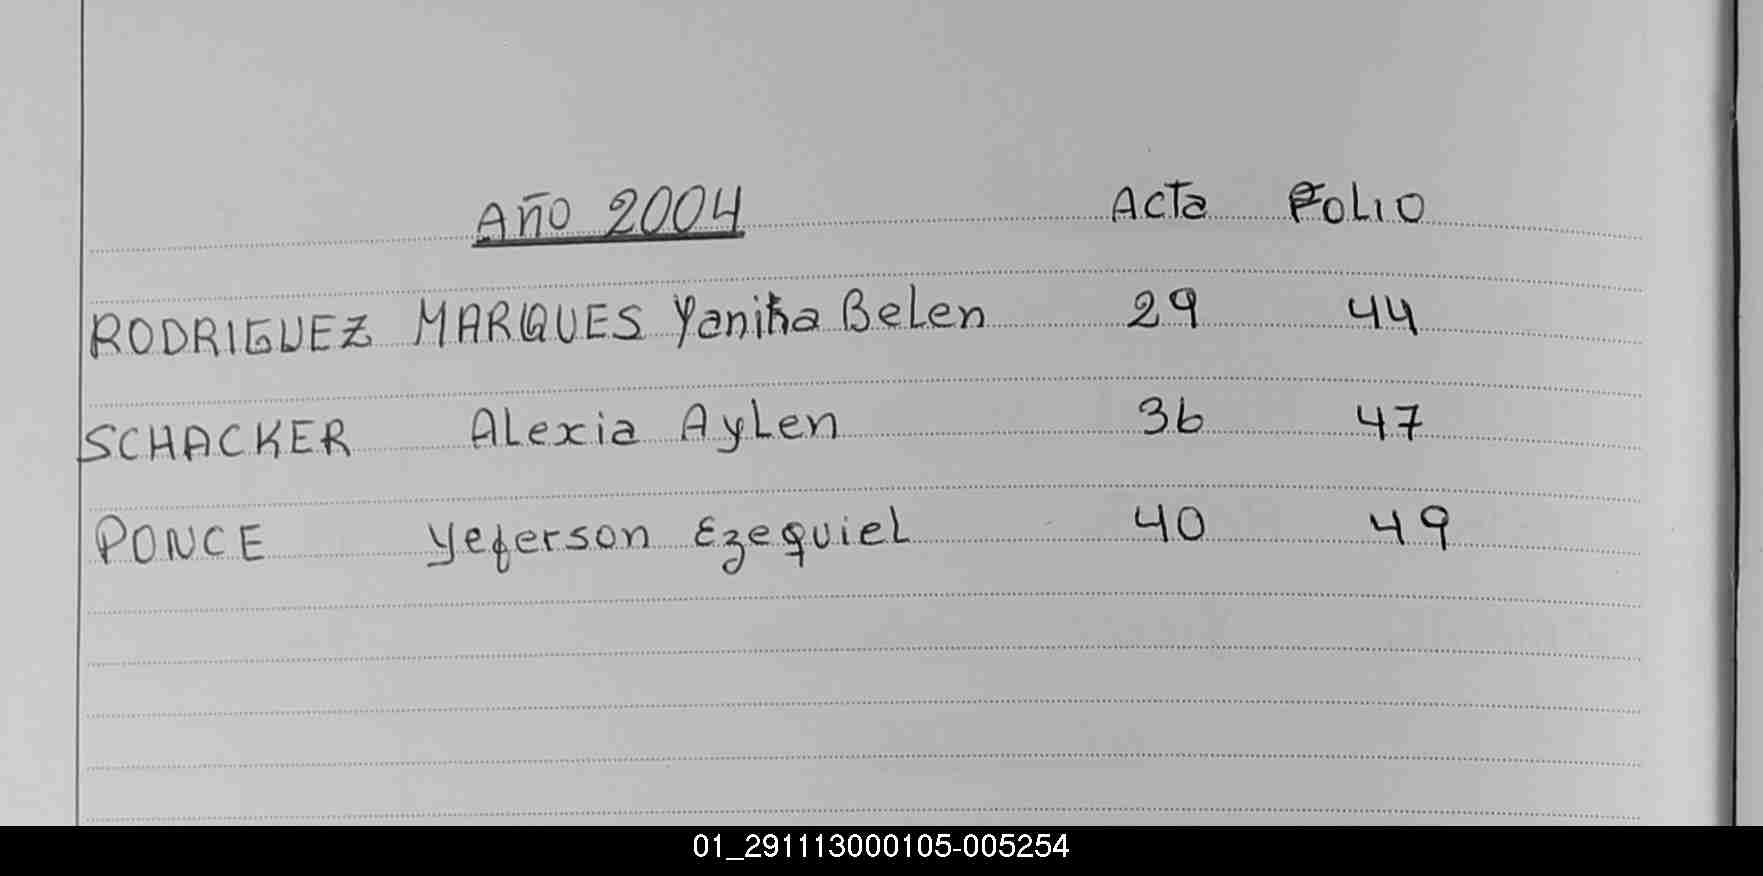 Año 2004 Acta Folio
RODRIGUEZ MARQUES Yanina Belen 29 44
SCHACKER Alexia Aylen 36 47
PONCE Yeferson Ezequiel 40 49
01_291113000105-005254